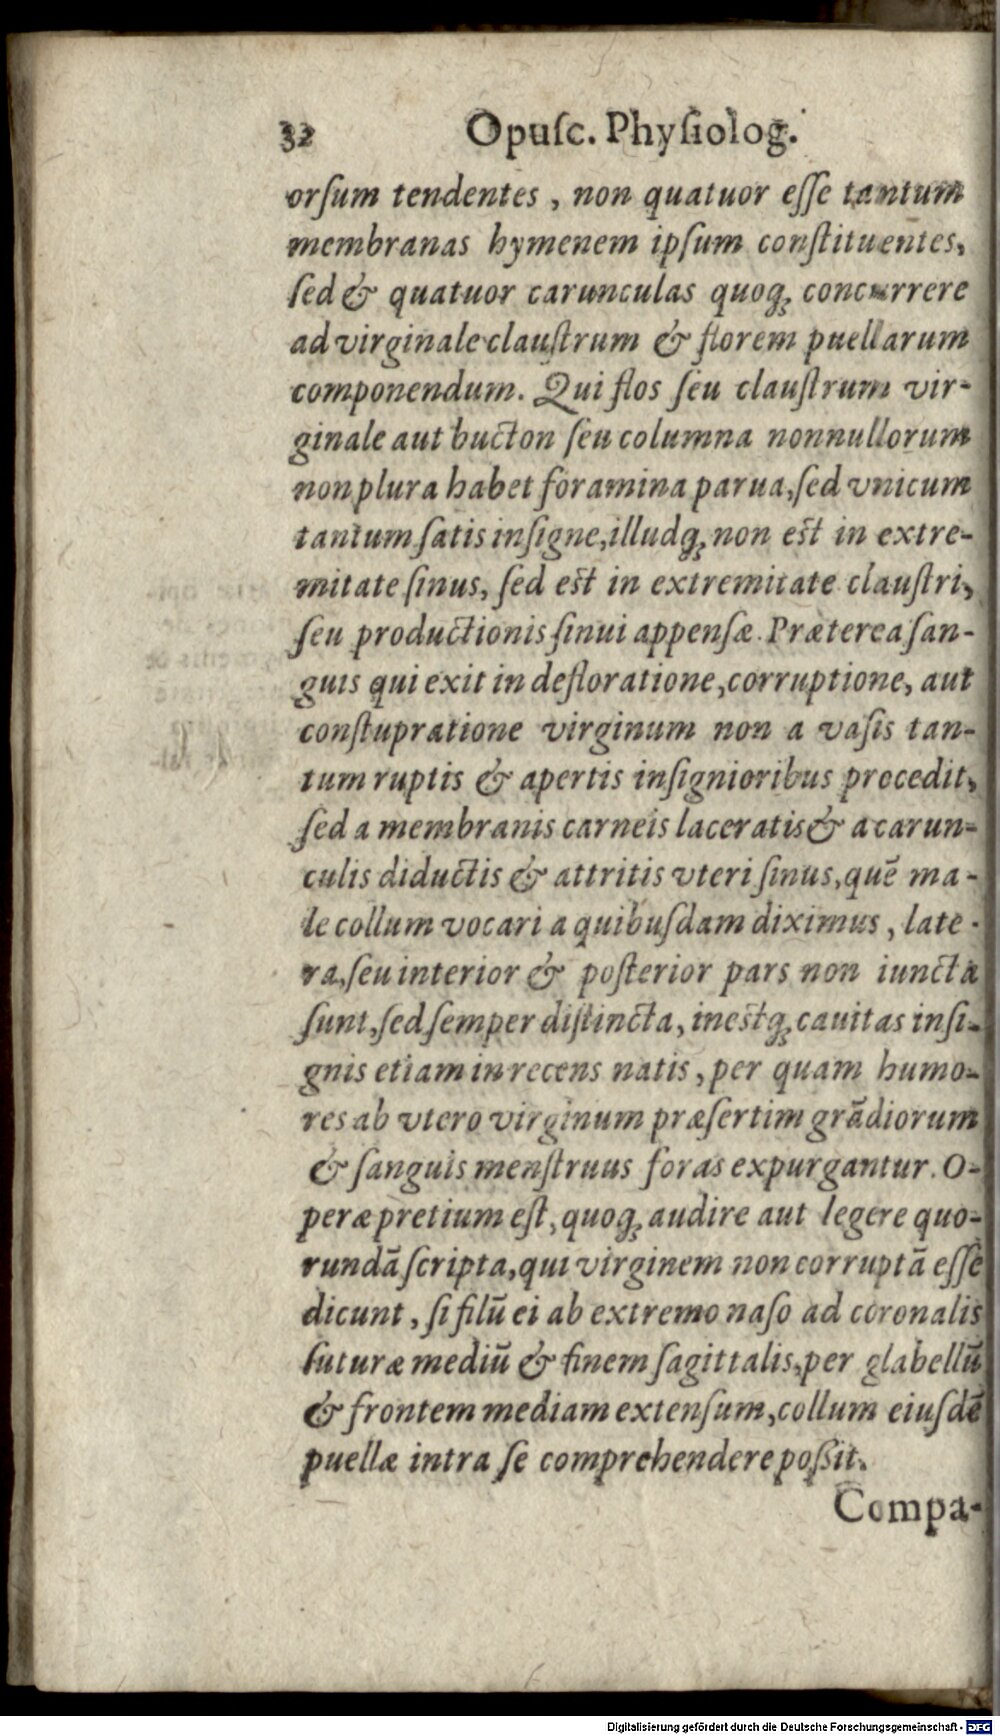 32 Opuſc. Phyſiolog.
orſum tendentes, non quatuor eſſe tantum
membranas hymenem ipſum conſtituentes,
ſed & quatuor carunculas quoq; concurrere
ad virginale clauſtrum & florem puellarum
componendum. Qui flos ſeu clauſtrum vir-
ginale aut bucton ſeu columna nonnullorum
non plura habet foramina parua, ſed vnicum
tantum ſatis inſigne, illudq; non eſt in extre-
mitate ſinus, ſed eſt in extremitate clauſtri,
ſeu productionis ſinui appenſæ. Præterea ſan-
guis qui exit in defloratione, corruptione, aut
conſtupratione virginum non a vaſis tan-
tum ruptis & apertis inſignioribus procedit,
ſed a membranis carneis laceratis & a carun-
culis diductis & attritis vteri ſinus, quē ma-
le collum vocari a quibuſdam diximus, late-
ra, ſeu interior & poſterior pars non iuncta
ſunt, ſed ſemper diſtincta, ineſtq; cauitas inſi-
gnis etiam in recens natis, per quam humo-
res ab vtero virginum præſertim grādiorum
& ſanguis menſtruus foras expurgantur. O-
peræ pretium eſt, quoq; audire aut legere quo-
rundā ſcripta, qui virginem non corruptā eſſe
dicunt, ſi filū ei ab extremo naſo ad coronalis
ſuturæ mediū & finem ſagittalis, per glabellū
& frontem mediam extenſum, collum eiuſdē
puellæ intra ſe comprehendere poſſit.
Compa-
Digitalisierung gefördert durch die Deutsche Forschungsgemeinschaft - DFG